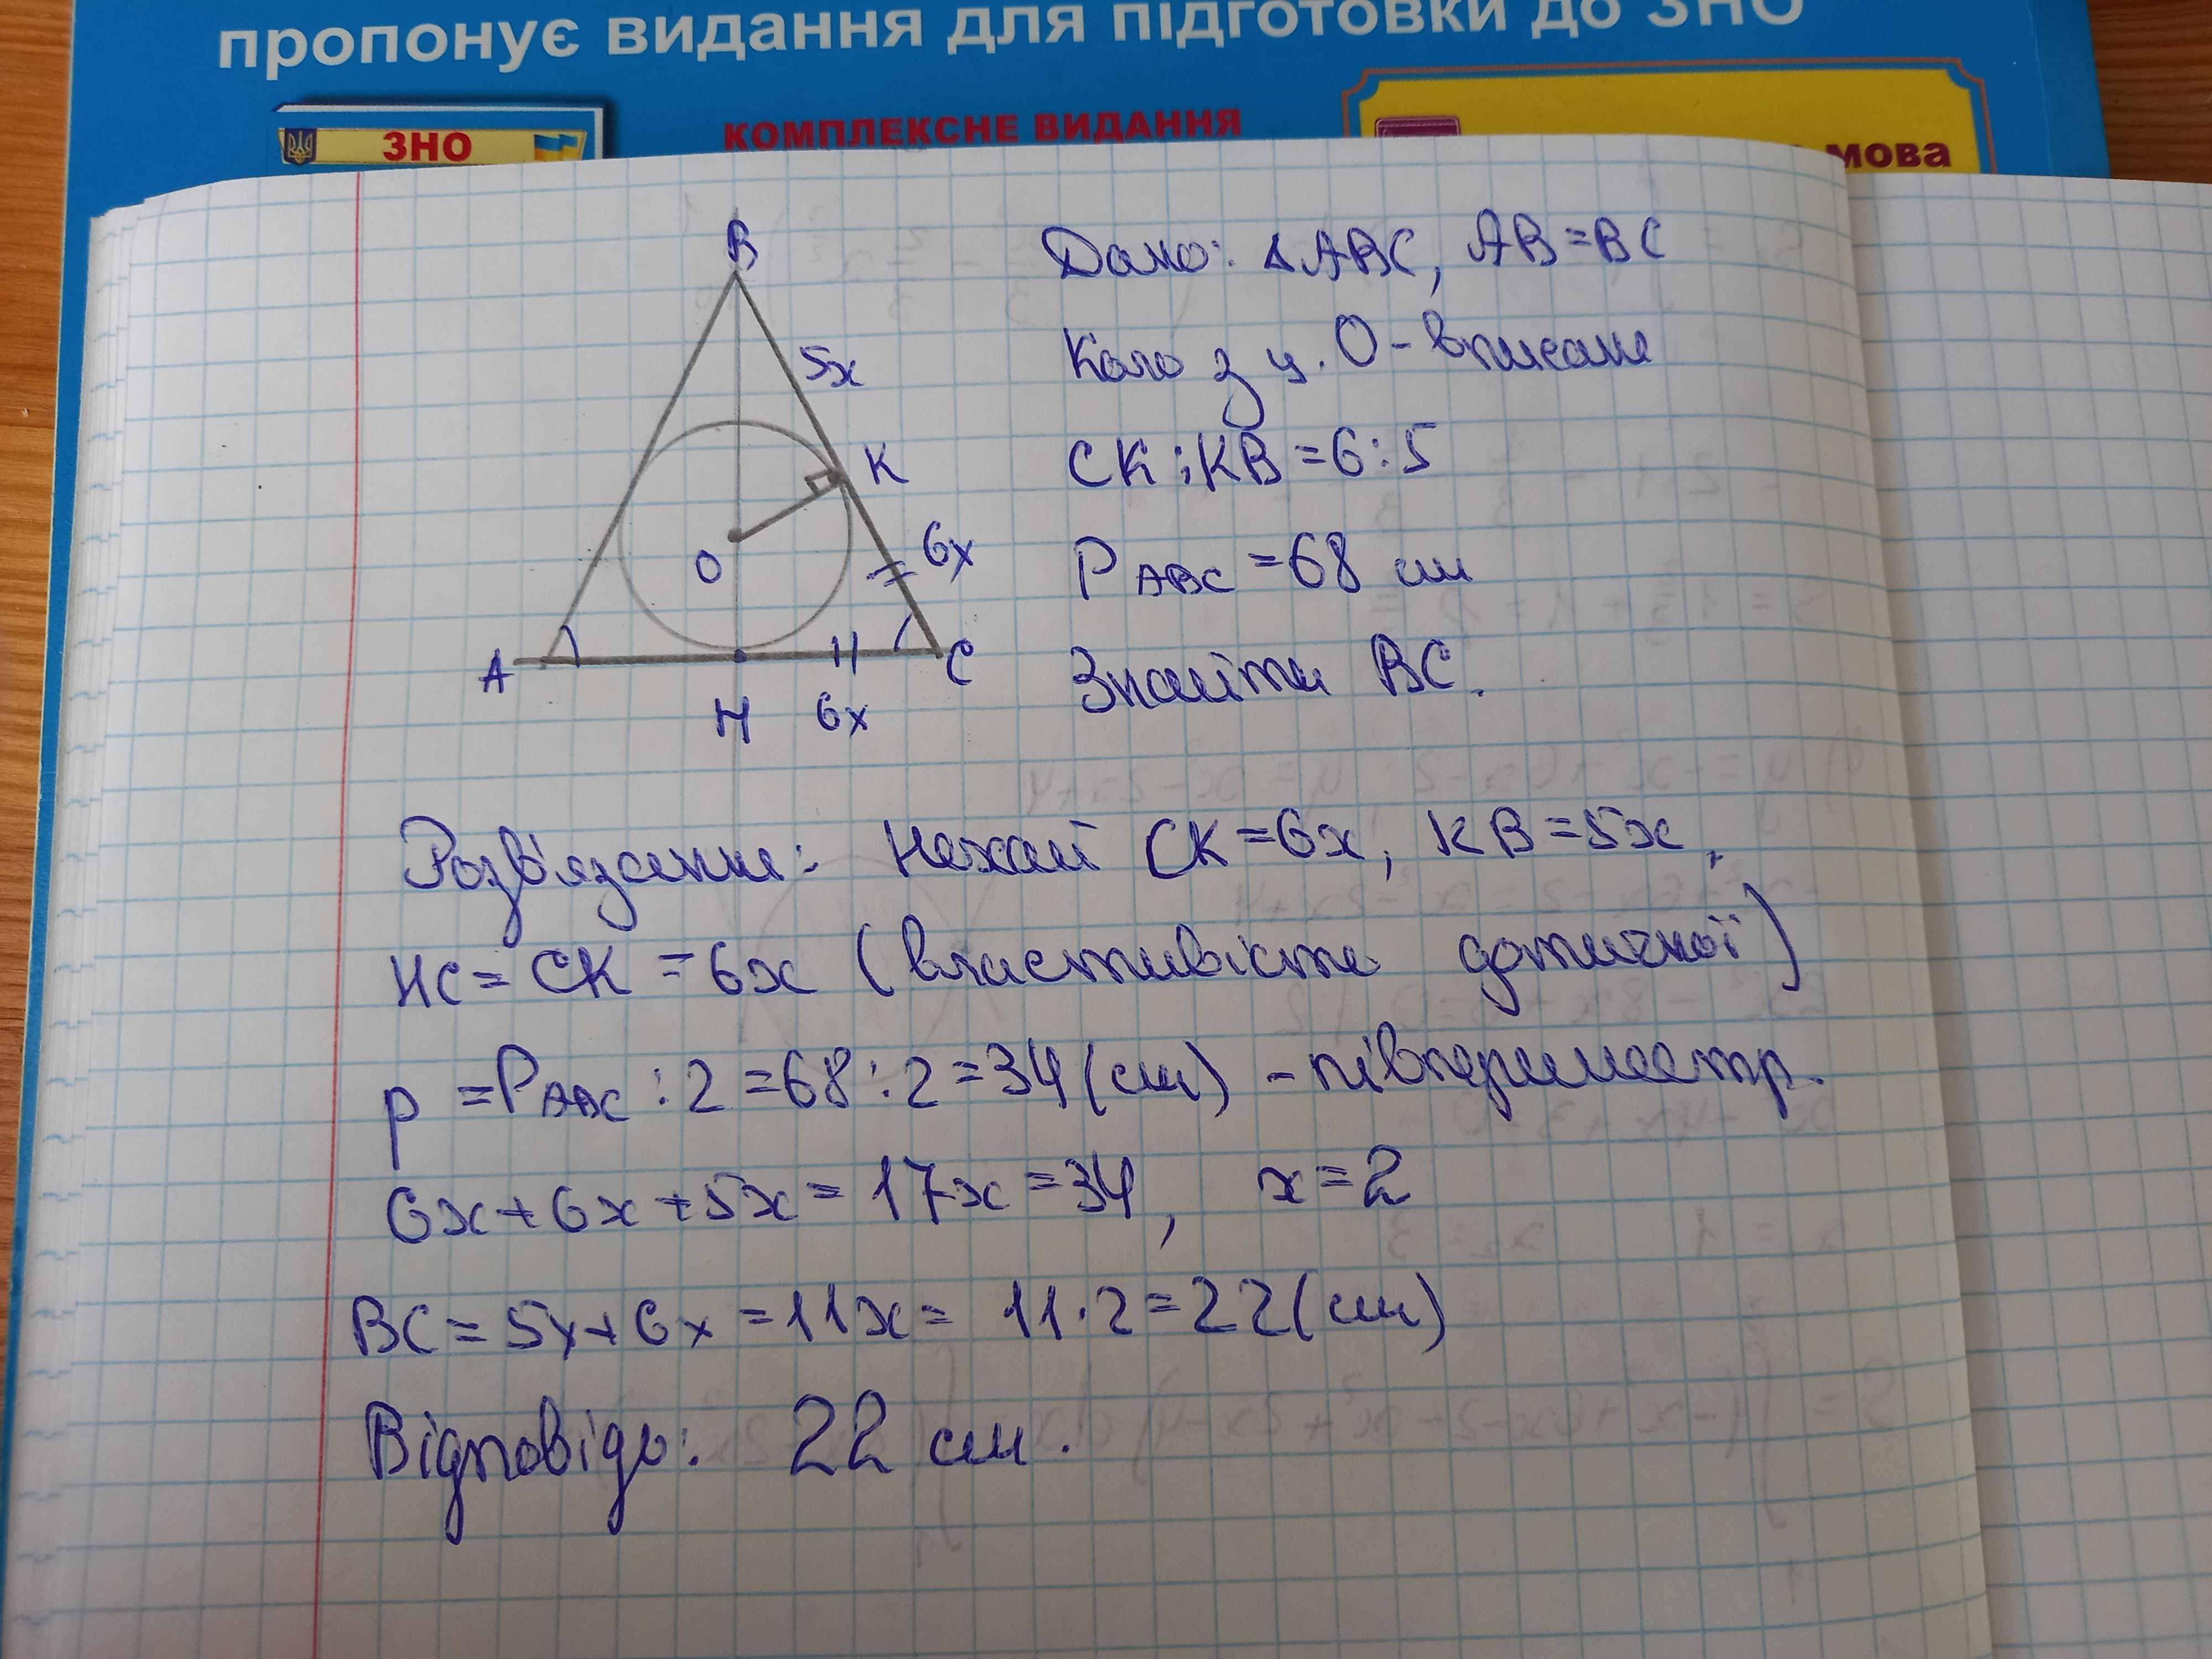 пропонує видання для підготовки до ЗНО
ЗНО
КОМПЛЕКСНЕ ВИДАННЯ
мова
B
5x
K
O
6x
A
H
6x
C
Дано: ΔABC, AB=BC
Коло з ц. O - вписане
CK:KB=6:5
P ABC =68 см
Знайти BC.
Розв'язання: Нехай CK=6x, KB=5x,
HC=CK=6x (властивість дотичної)
p =P ABC :2=68:2=34(см) - півпериметр.
6x+6x+5x=17x=34, x=2
BC=5x+6x=11x= 11·2=22(см)
Відповідь: 22 см.